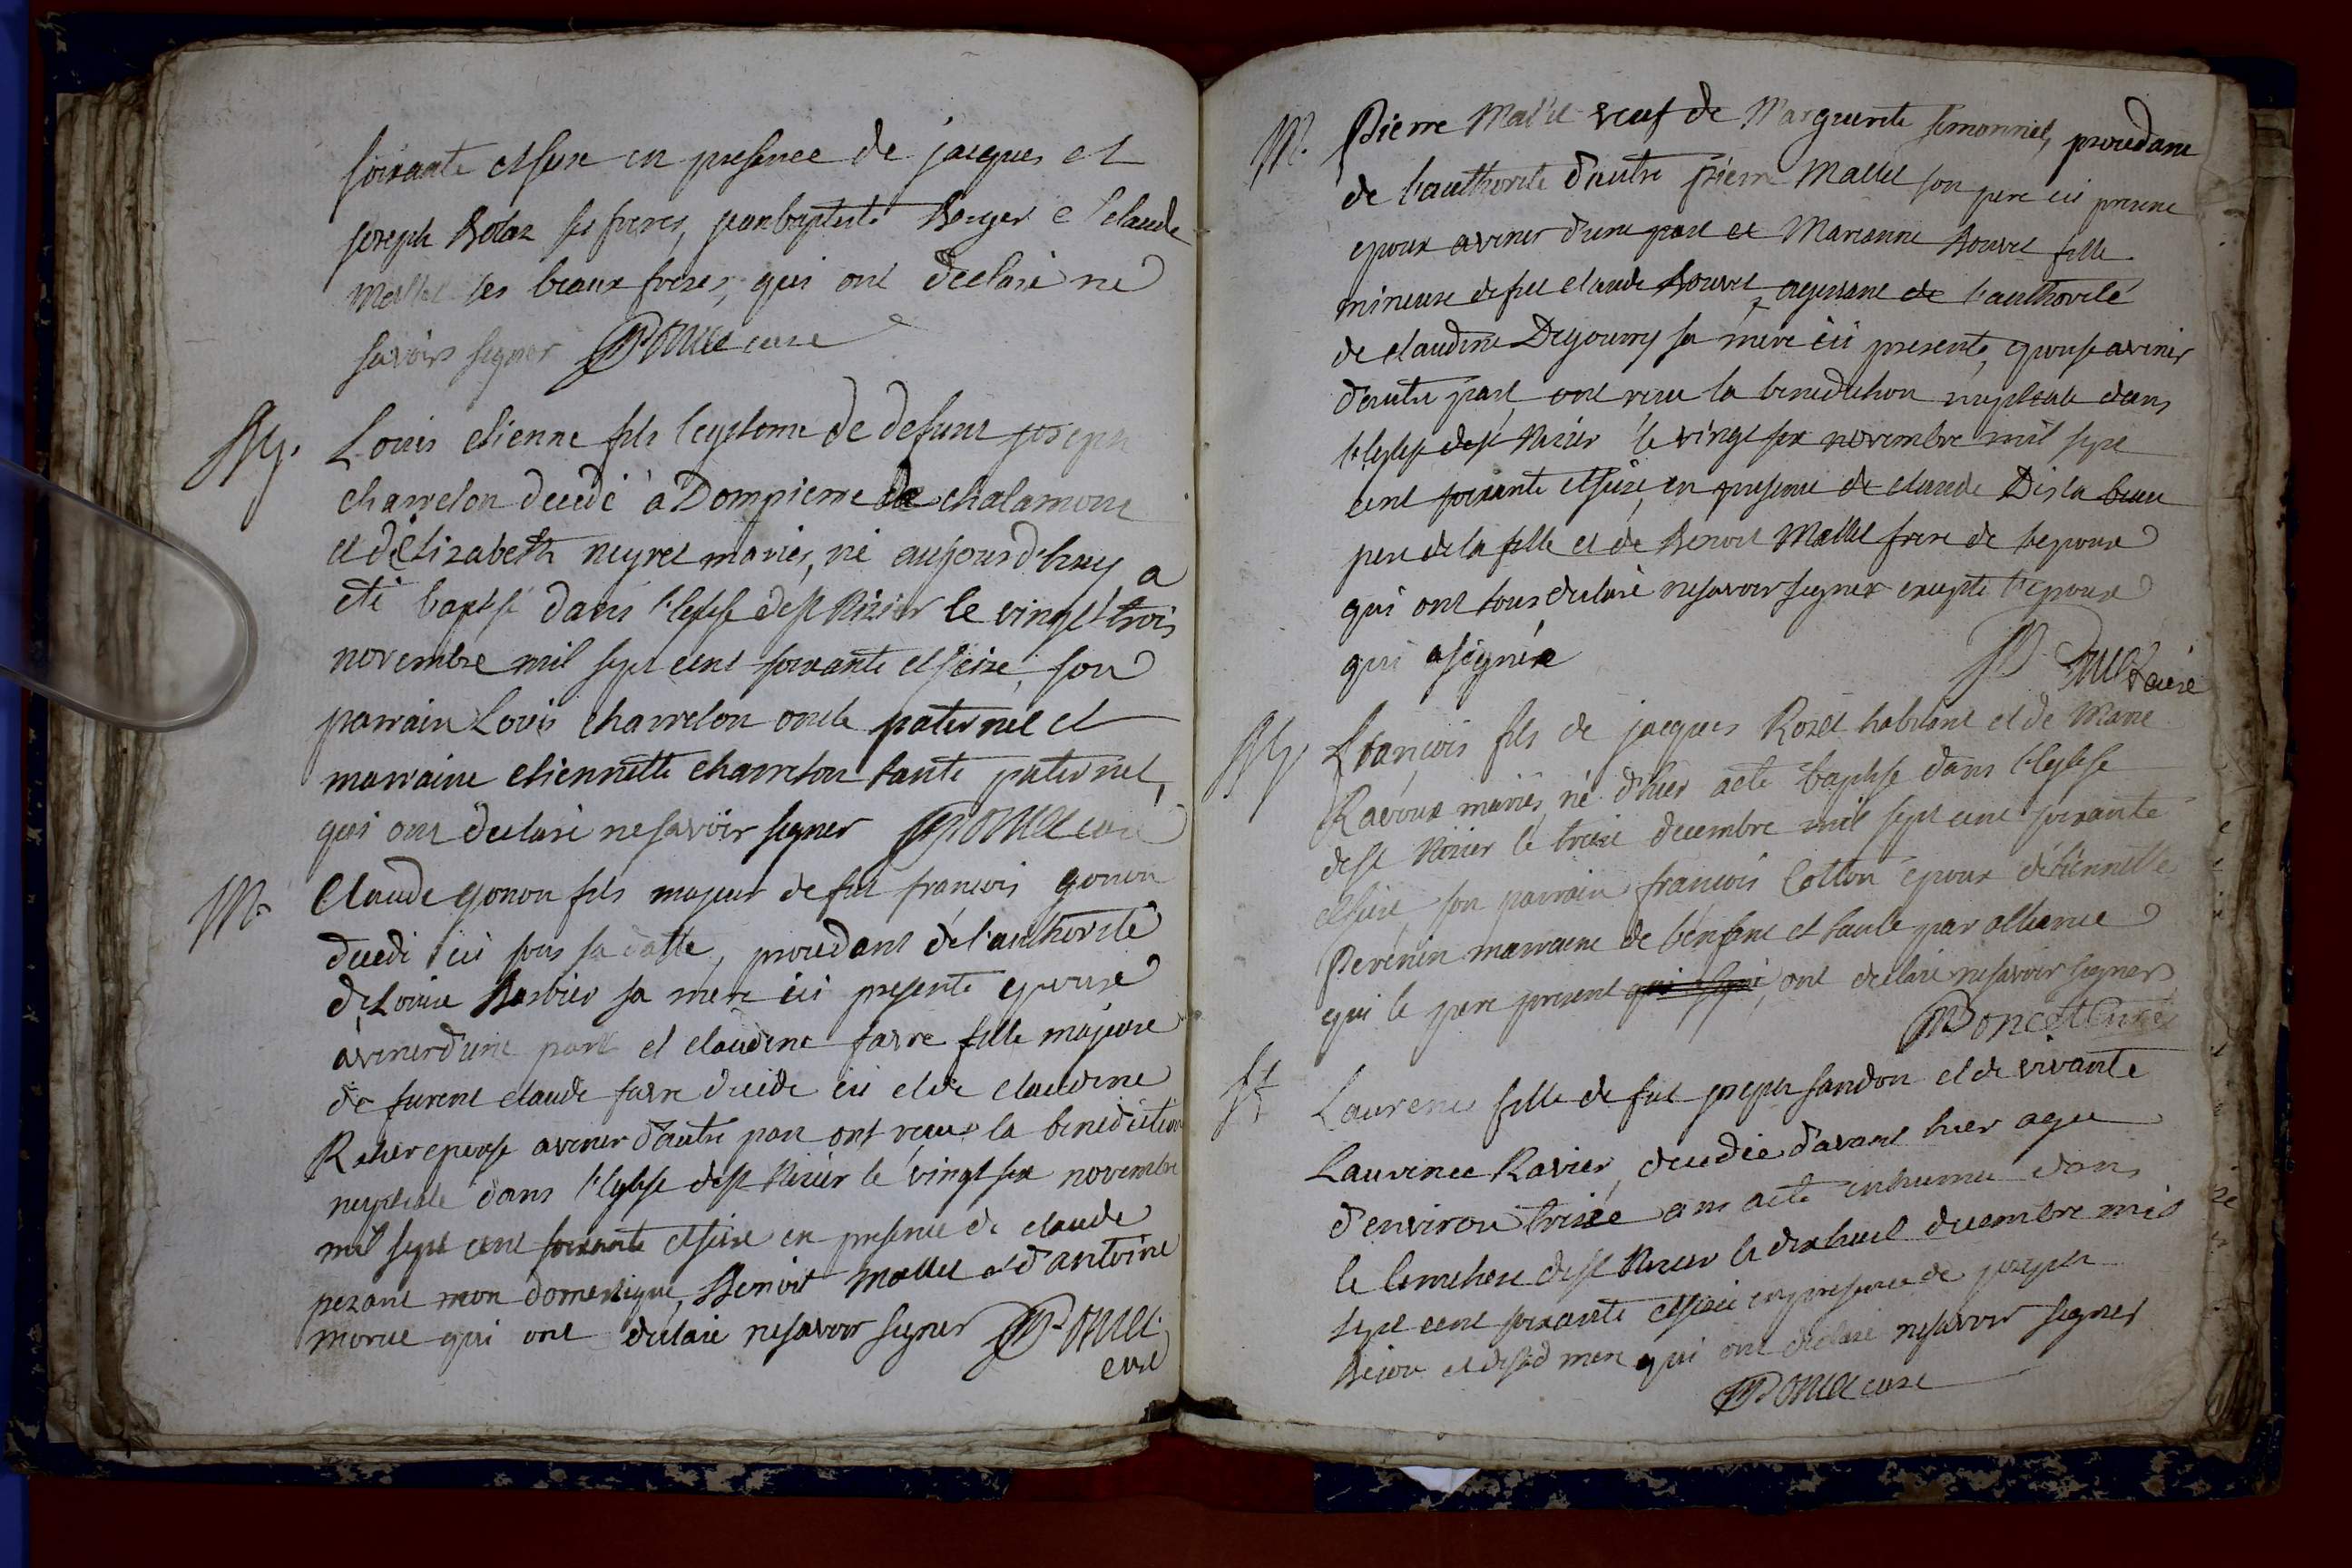 soixante et seze en presence de jacques et
joseph Bolaz ses freres, jean baptiste Berger et claude
Mallet ses beaux freres, qui ont declaré ne
savoir signer Poncet curé
Bap. Louis etienne fils legitome de defunt joseph
charreton decedé à Dompierre de chalamont
et d'Elizabeth neyret mariés, né aujourd'huy a
eté baptisé dans l'eglise de st Nizier le vingt trois
novembre mil sept cent soixante et seize, son
parrain Louis charreton oncle paternel et
marraine etiennette charreton tante paternel,
qui ont declaré ne savoir signer Poncet curé
M. Claude gonon fils majeur de feu francois gonon
decedé ici sous sa datte, procedant de l'authorité
de Louise Barbier sa mere ici presente epouse
avenir d'une part et claudine favre fille majeure
de furent claude favre decedé ici et de claudine
epouse avenir d'autre part ont recue la benediction
nuptiale dans l'eglise de st Nizier le vingt six novembre
mil sept cent soixante et seize en presence de claude
pezant mon domestique, Benoit Mallet et d'antoine
morue qui ont declaré ne savoir signer Poncet
curé
M. Pierre Mallet veuf de Marguerite simonnet, procedant
de l'authorité d'autre pierre Mallet son pere ici present
epoux avenir d'une part et Marianne Bouvet fille
mineure de feu claude Bouvet, agissant de l'authorité
de claudine Dejourny sa mere ici presente, epouse avenir
d'autre part, ont recu la benediction nuptiale dans
l'eglise de st Nizier le vingt six novembre mil sept
cent soixante et seize, en presence de claude Disla beau
pere de la fille et de Benoit Mallet frere de l'epoux
qui ont tous declaré ne savoir signer excepté l'epoux
qui a signé
Poncet curé
Bap. François fils de jacques Rozet habitant et de Marie
Ravoux mariés, né d'hier a eté baptisé dans l'eglise
de st Nizier le treize decembre mil sept cent soixante
et seize son parrain françois Cotton epoux d'etiennette
Pevenin marraine de l'enfant et tante par alliance
qui le pere present qui signé, ont declaré ne savoir signer
Poncet Curé
St Laurence fille de feu joseph sandon et de vivante
Laurence Ravier, decedée d'avant hier agée
d'environ treize ans a eté inhumée dans
le cimetiere de st Nizier le dixhuit decembre mil
sept cent soixante et seize en presence de joseph
Bejou et desd mere qui ont declaré ne savoir signer
Poncet curé